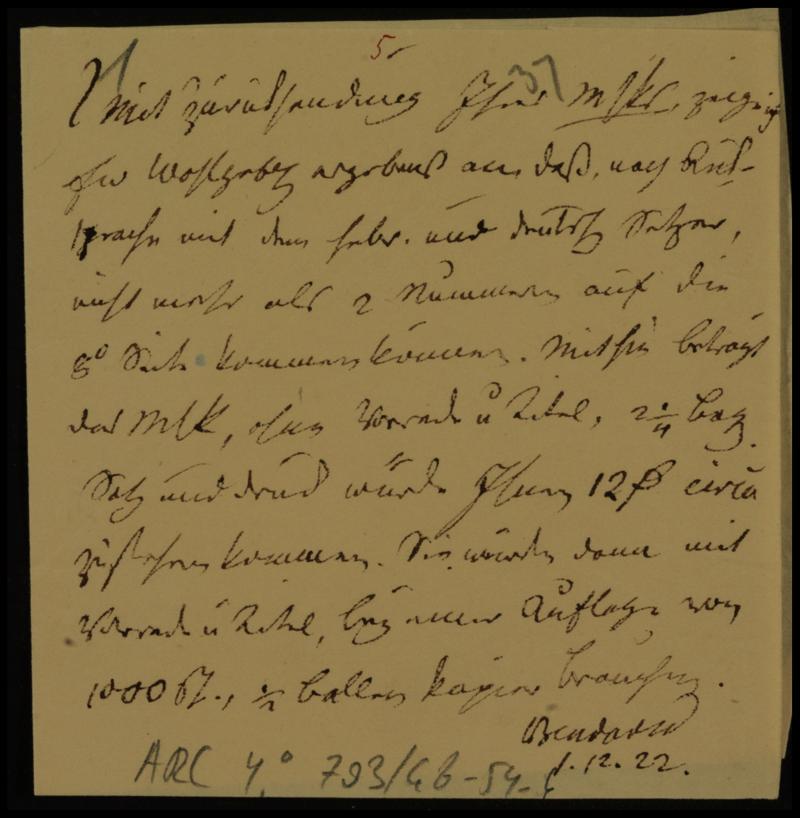 5
37
Mit Zurücksendung Ihres MSks. zeige ich
Ew Wohlgeb. ergebenst an, daß, nach Rück-
sprache mit dem hebr. und deutsch Setzer,
nicht mehr als 2 Nummern auf die
8° Seite kommen können. Mithin beträgt
das MSk, ohne Vorrede u Titel, 2 1/4 Bog.
Satz und Druck würde Ihnen 12 circa
zustehen kommen. Sie würden dann mit
Vorrede u Titel, bey einer Auflage von
1000 St., 1/2 Ballen Papier brauchen.
12. 22.
ARC 4° 793/